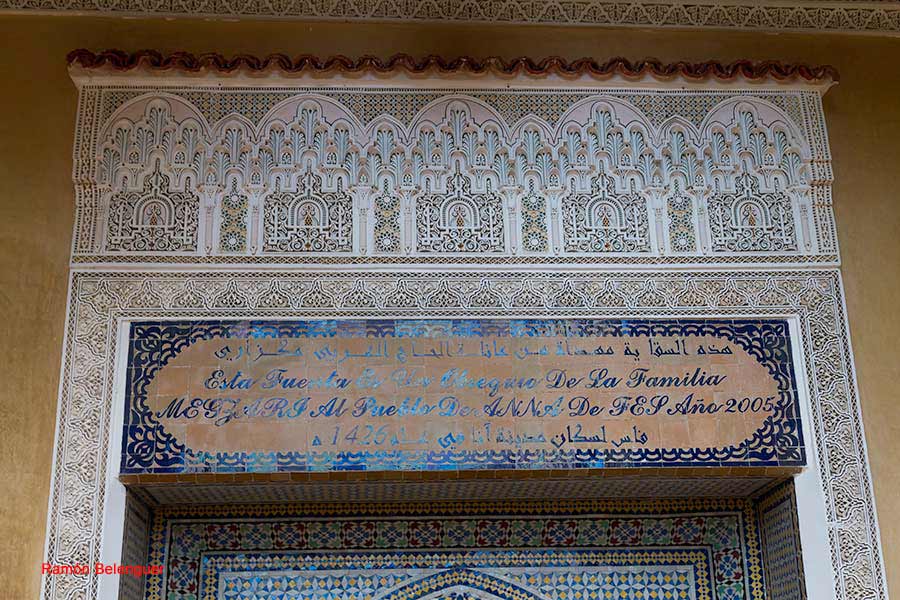 هذه السقاية مهداة من عائلة الحاج العربي مكزاري
Esta Fuente Es Un Obsequio De La Familia
MEGZARI Al Pueblo De ANNA De FES Año 2005
فاس لسكان مدينة أنا في عام 1426 ه
Ramón Belenguer